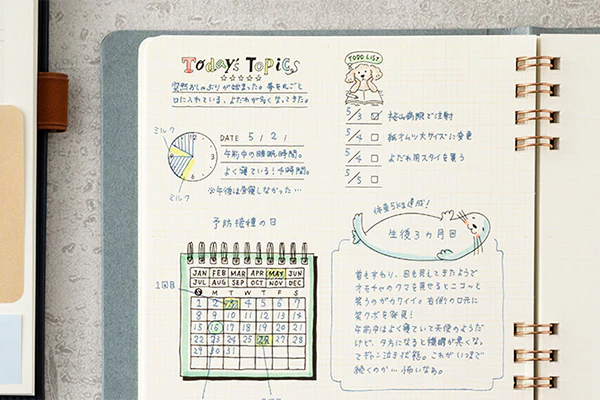 Today's Topics
突然おしゃぶりが始まった。手を丸ごと
口に入れている。よだれが多くなってきた。
ミルク
ミルク
DATE 5/2/
午前中の睡眠時間。
よく寝ている！4時間。
今午後は昼寝しなかった…
TODO LIST
5/3 桜山病院で注射
5/4 紙オムツ大サイズに変更
5/4 よだれ用スタイを買う
5/5
予防接種の日
1回目
JAN FEB MAR APR MAY JUN
JUL AUG SEP OCT NOV DEC
S M T W T F S
1 2 3 4 5 6 7
8 9 10 11 12 13 14
15 16 17 18 19 20 21
22 23 24 25 26 27 28
29 30 31
体重5kg達成！
生後3ヵ月目
首もすわり、目も見えてきたようで
オモチャのクマを見せるとニコ〜と
笑うのがカワイイ。右側の口元に
笑クボを発見！
午前中はよく寝ていて天使のようだ
けど、夕方になると機嫌が悪くなっ
てギャン泣き状態。これがいつまで
続くのか… 怖いなぁ。